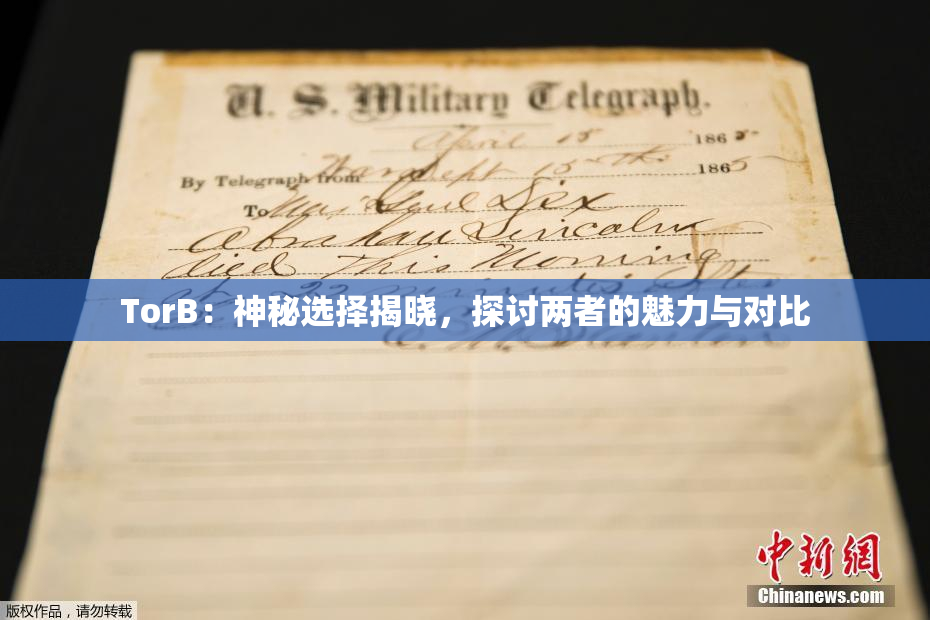 U. S. Military Telegraph.
April 15 1865
By Telegraph from War Dept 15th 1865
To Maj Genl Dix
Abraham Lincoln
died This Morning
at 22 minutes after
TorB：神秘选择揭晓，探讨两者的魅力与对比
E. M. Stanton
中新网
Chinanews.com
版权作品，请勿转载